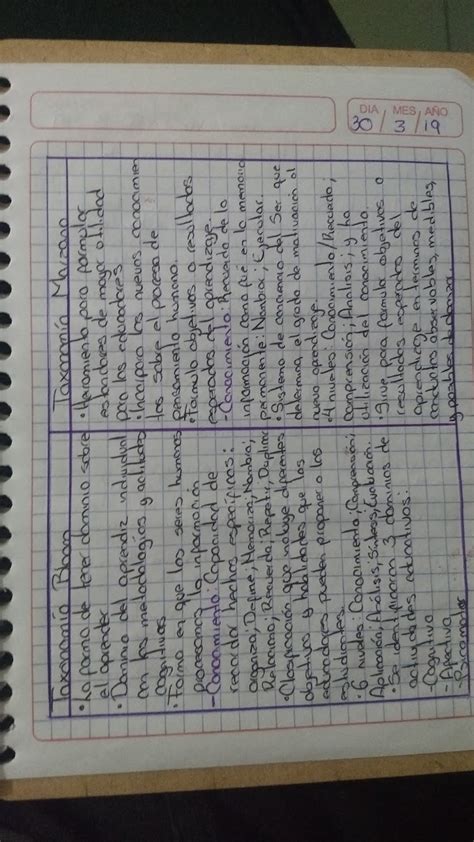 DIA MES AÑO
30 / 3 / 19
Taxonomía Bloom
• La forma de tener dominio sobre
el aprender
• Dominio del aprendiz individual
con las metodologías y actitudes
cognitivas
• Forma en que los seres humanos
procesamos la información
- Conocimiento: Capacidad de
recordar hechos específicos:
organiza; Define; Memoriza; Nombra;
Relaciona; Recuerda; Repetir; Duplicar
• Clasificación que incluye diferentes
objetivos y habilidades que los
educadores pueden proponer a los
estudiantes.
• 6 niveles: Conocimiento; Comprensión;
Aplicación; Análisis; Síntesis; Evaluación.
• Se identificaron 3 dominios de
actividades educativas:
- Cognitiva
- Afectiva
- Psicomotor
Taxonomía Marzano
• Herramienta para formular
estandares de mayor utilidad
para los educadores
• Incorpora los nuevos conocimien
tos sobre el proceso de
pensamiento humano.
• Formula objetivos o resultados
esperados del aprendizaje.
- Conocimiento: Recuerdo de la
información como fué en la memoria
permanente: Nombra; Ejecutar.
• Sistema de conciencia del Ser que
determina el grado de motivación al
nuevo aprendizaje.
• 4 niveles: Conocimiento/Recuerdo;
Comprensión; Análisis; y
utilización del conocimiento.
• Sirve para formular objetivos o
resultados esperados del
aprendizaje en términos de
conductas observables, medibles,
y posibles de